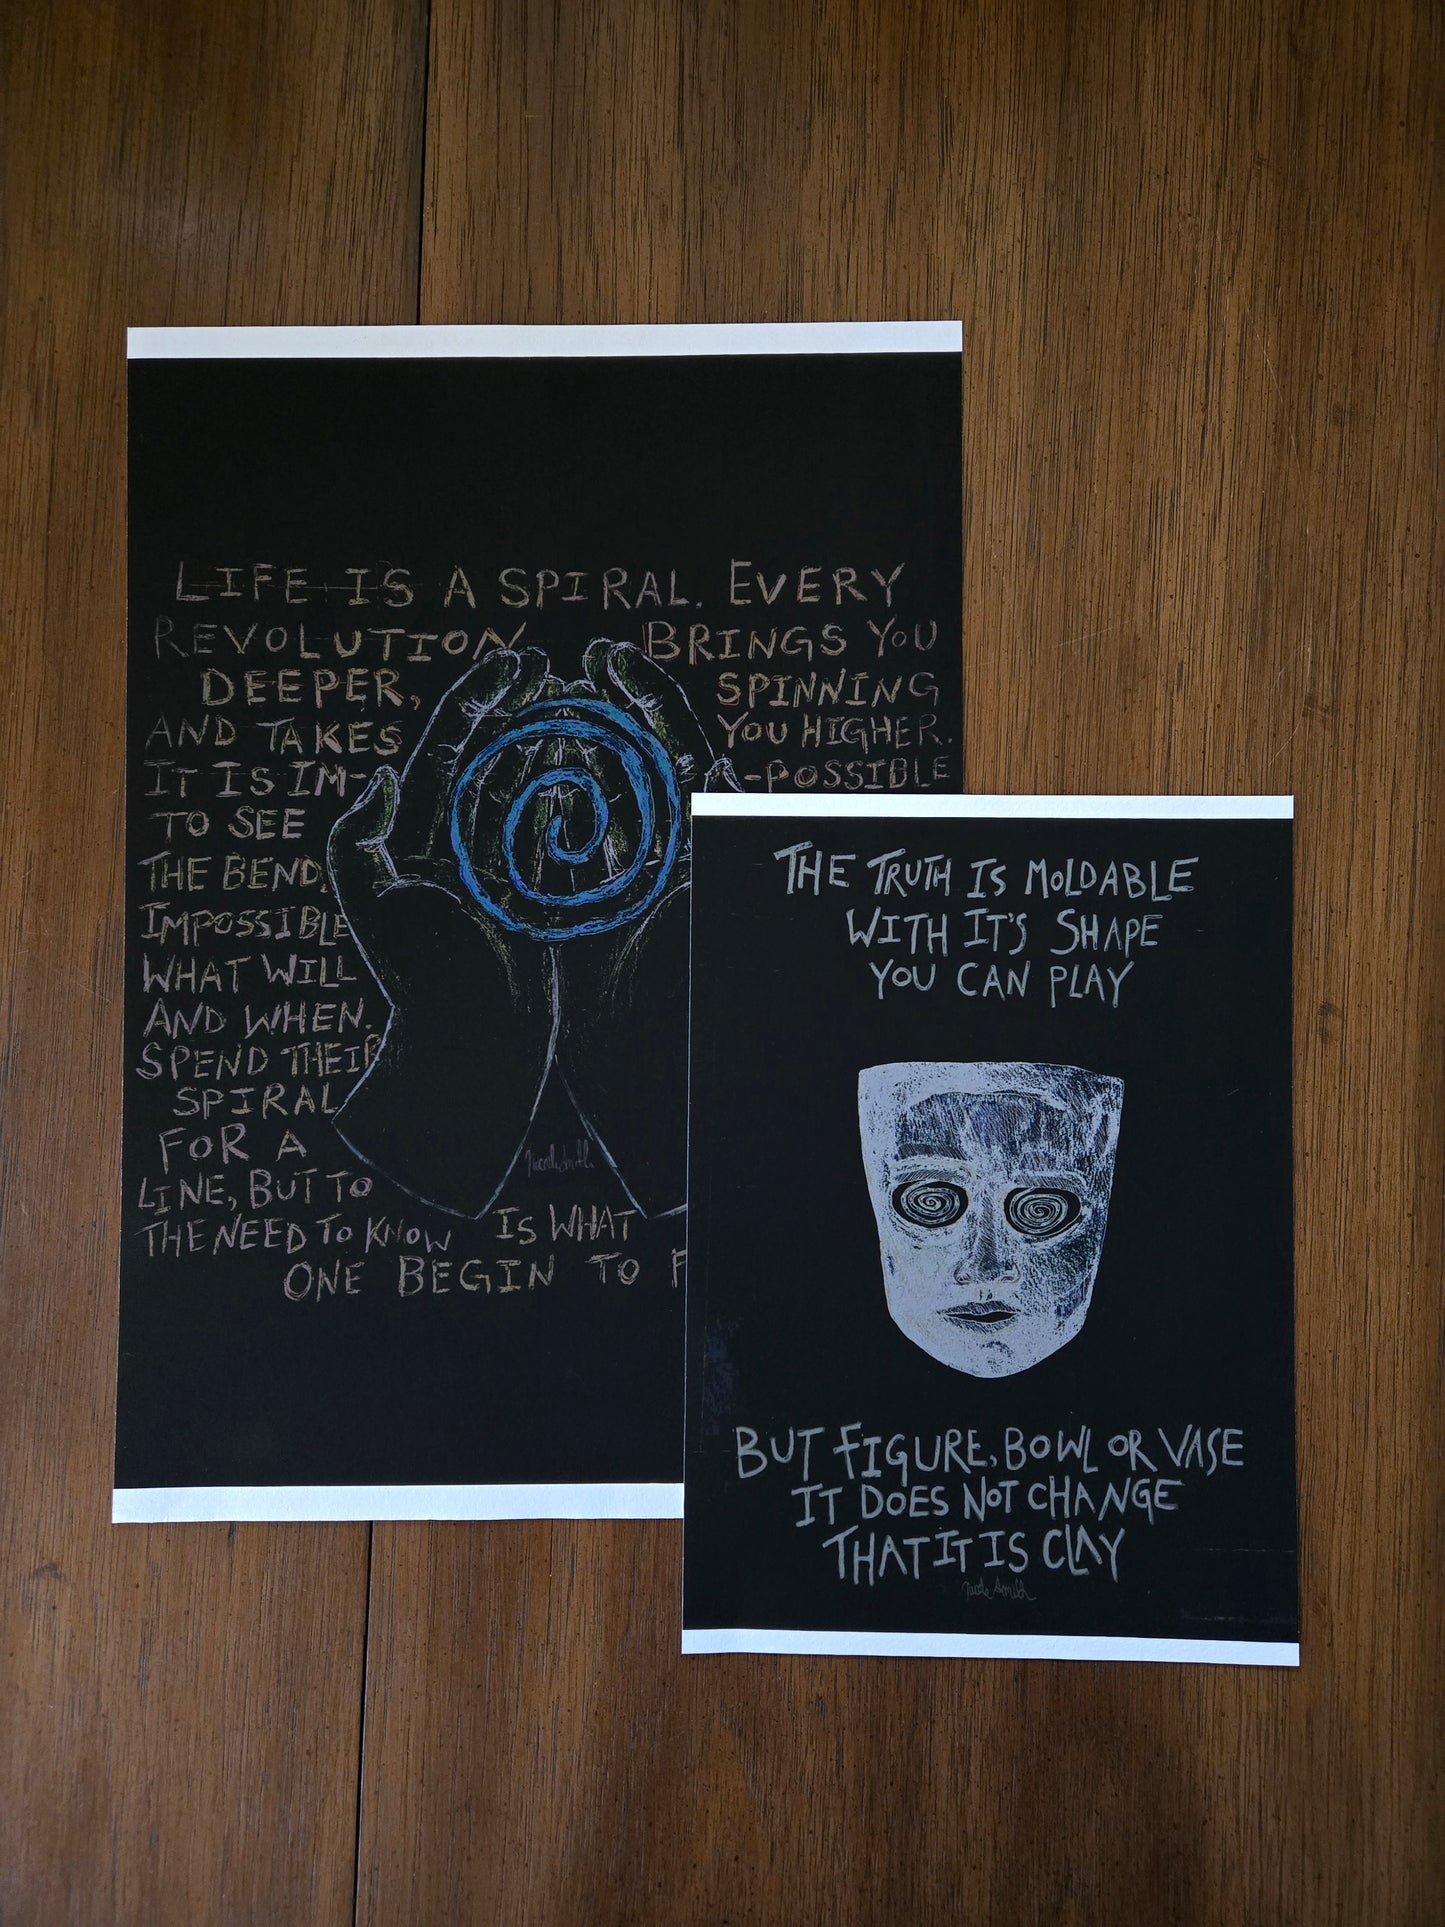 LIFE IS A SPIRAL. EVERY
REVOLUTION BRINGS YOU
DEEPER, SPINNING
AND TAKES YOU HIGHER.
IT IS IM- -POSSIBLE
TO SEE
THE BEND,
IMPOSSIBLE
WHAT WILL
AND WHEN.
SPEND THEIR
SPIRAL
FOR A
LINE, BUT TO
THE NEED TO KNOW IS WHAT
ONE BEGIN TO
Nicole Smith
THE TRUTH IS MOLDABLE
WITH IT'S SHAPE
YOU CAN PLAY
BUT FIGURE, BOWL OR VASE
IT DOES NOT CHANGE
THAT IT IS CLAY
Nicole Smith